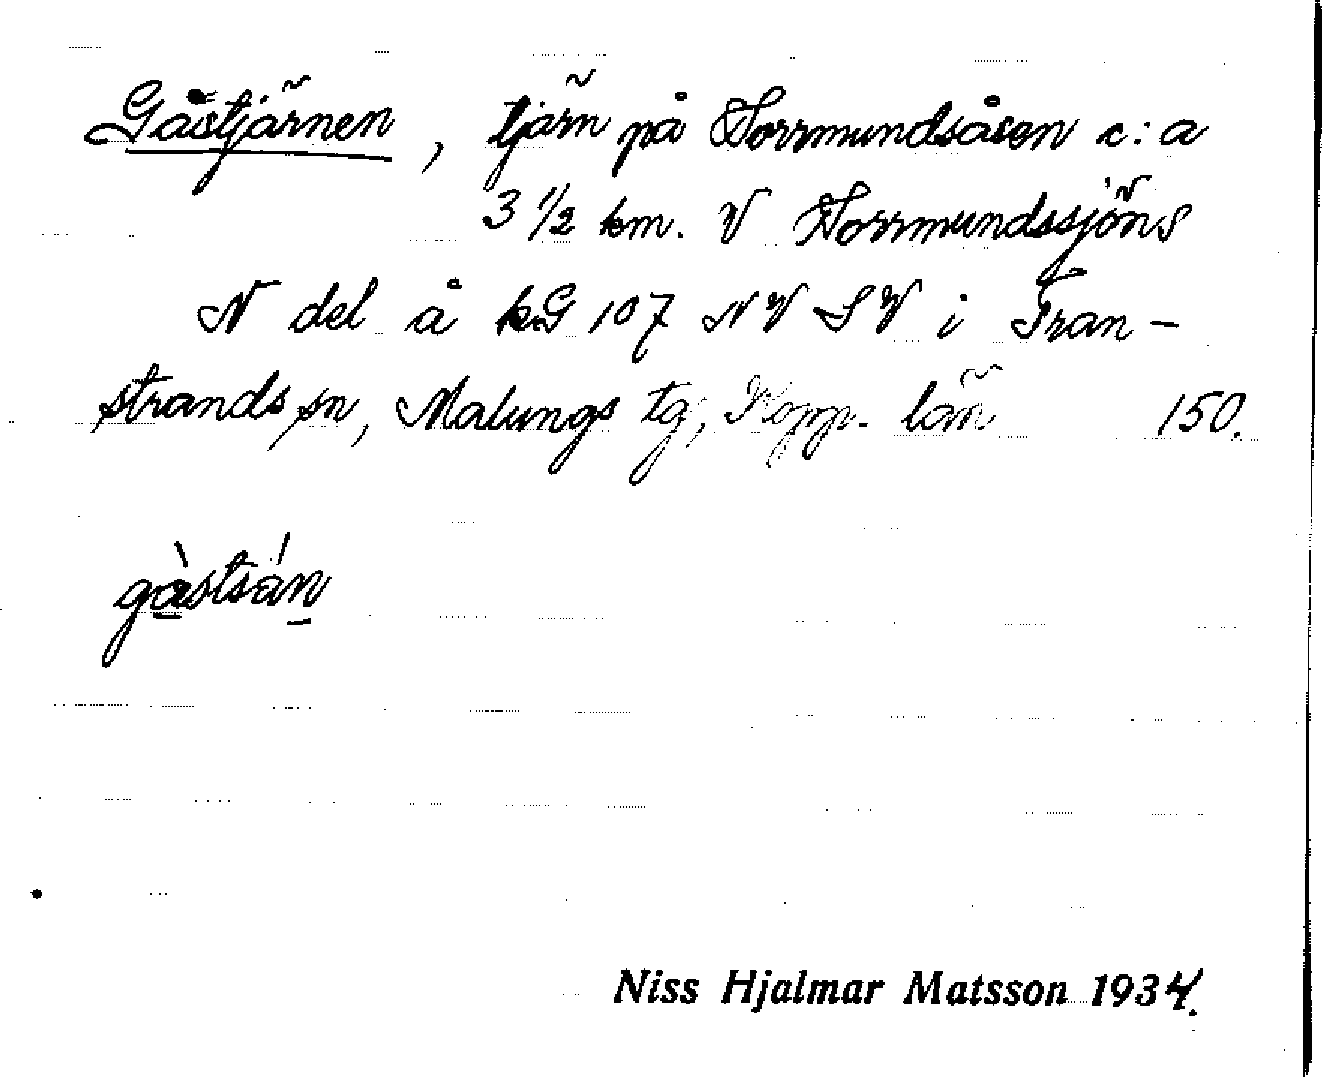 Gåstjärnen, tjärn på Horrmundsåsen c:a
3 1/2 km. V Horrmundssjöns
N del å kG 107 NV SV i Tran-
strands sn, Malungs tg, Kopp. län 150.
gàstsán
Niss Hjalmar Matsson 1934.